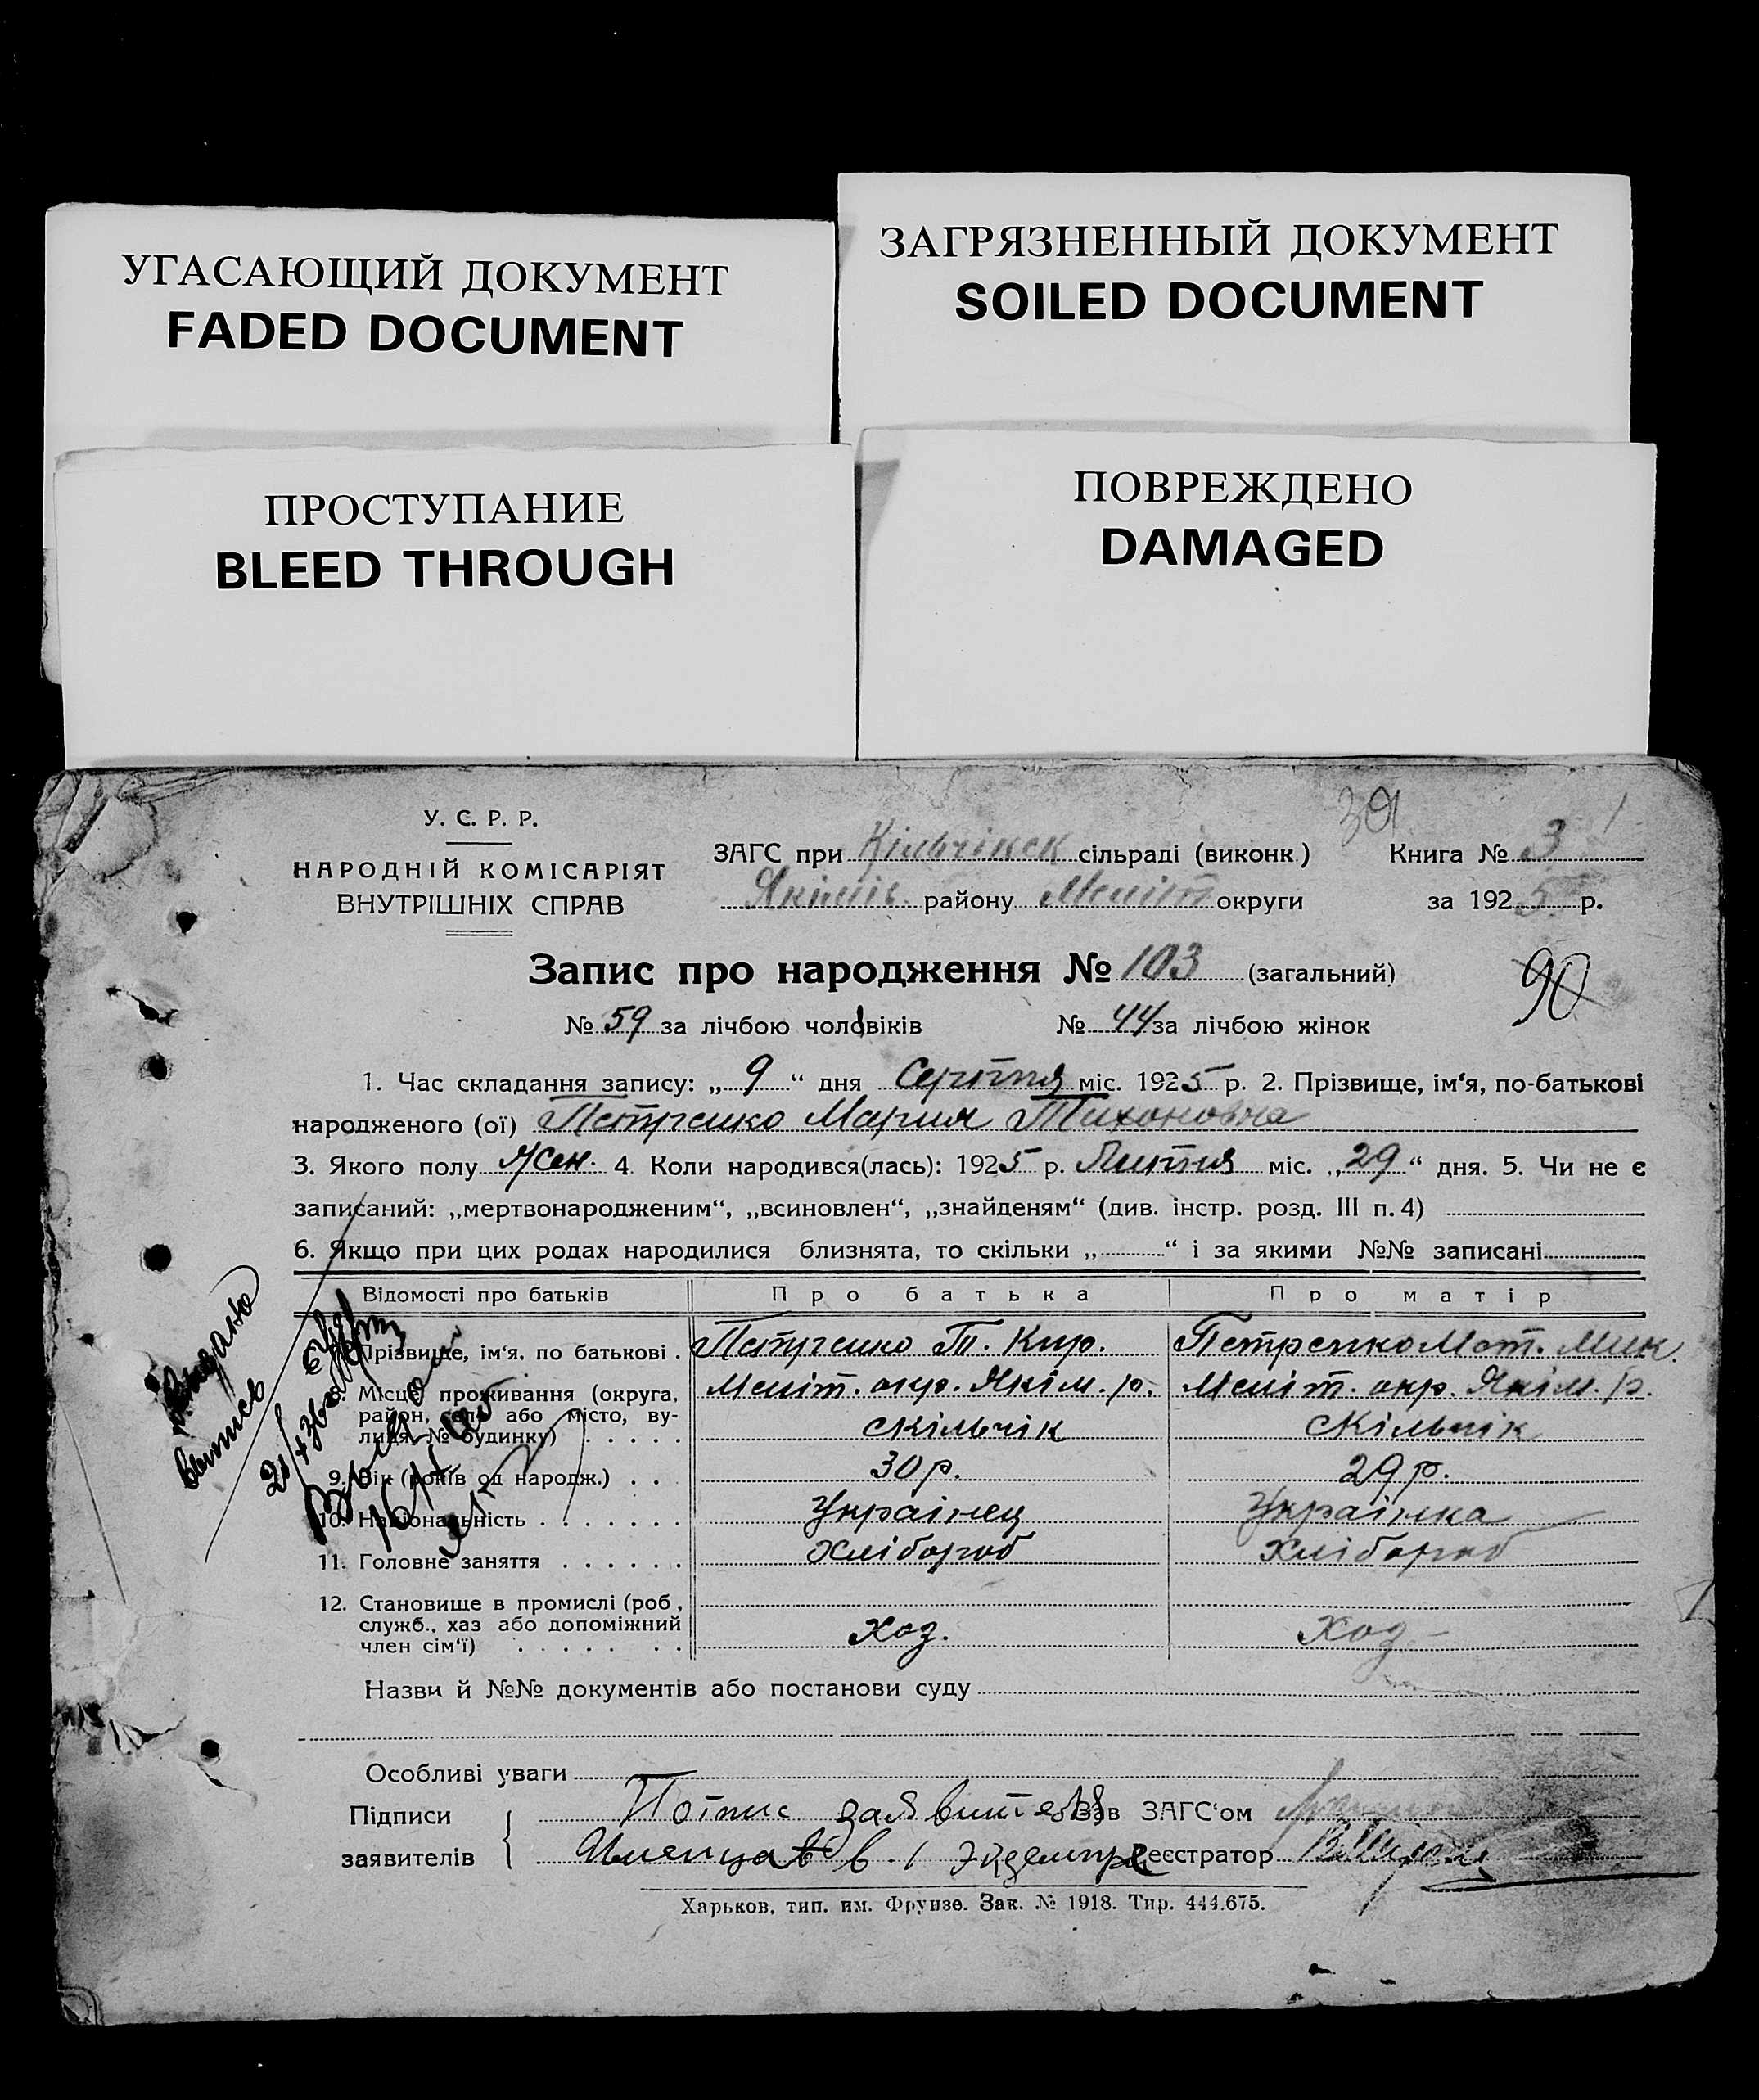 УГАСАЮЩИЙ ДОКУМЕНТ
FADED DOCUMENT
ЗАГРЯЗНЕННЫЙ ДОКУМЕНТ
SOILED DOCUMENT
ПРОСТУПАНИЕ
BLEED THROUGH
ПОВРЕЖДЕНО
DAMAGED
У. С. Р. Р.
НАРОДНІЙ КОМІСАРІЯТ
ВНУТРІШНІХ СПРАВ
ЗАГС при Кільчікск сільраді (виконк.) Книга № 3
Якімів. району Меліт округи за 1925 р.
Запис про народження № 103 (загальний)
90
№ 59 за лічбою чоловіків № 44 за лічбою жінок
1. Час складання запису: „ 9 “ дня Серпня міс. 1925 р. 2. Прізвище, ім‘я, по-батькові
народженого (ої) Петренко Мария Тихоновна
3. Якого полу Жен. 4. Коли народився(лась): 1925 р. Липня міс. „ 29 “ дня. 5. Чи не є
записаний: „мертвонародженим“, „всиновлен“, „знайденям“ (див. інстр. розд. III п. 4)
6. Якщо при цих родах народилися близнята, то скільки „ “ і за якими №№ записані
Відомості про батьків Про батька Про матір
Прізвище, ім‘я, по батькові . Петренко Т. Кир. Петренко Мот. Мик.
8. Місце проживання (округа, Меліт. окр. Якім. р. Меліт. окр. Якім. р.
район, село або місто, ву-
лиця, № будинку) . . . . . с Кільчік с Кільчік
9. Вік (років од народж.) . . 30 р. 29 р.
10. Національність . . . . . . . Українец Українка
11. Головне заняття . . . . . . Хлібороб Хлібороб
12. Становище в промислі (роб.,
служб., хаз або допоміжний
член сім‘ї) . . . . . . . Хоз. Хоз
Назви й №№ документів або постанови суду
Особливі уваги
Підписи заявителя Зав ЗАГС‘ом
заявителів в 1 Реєстратор
Харьков, тип. им. Фрунзе. Зак. № 1918. Тир. 444.675.